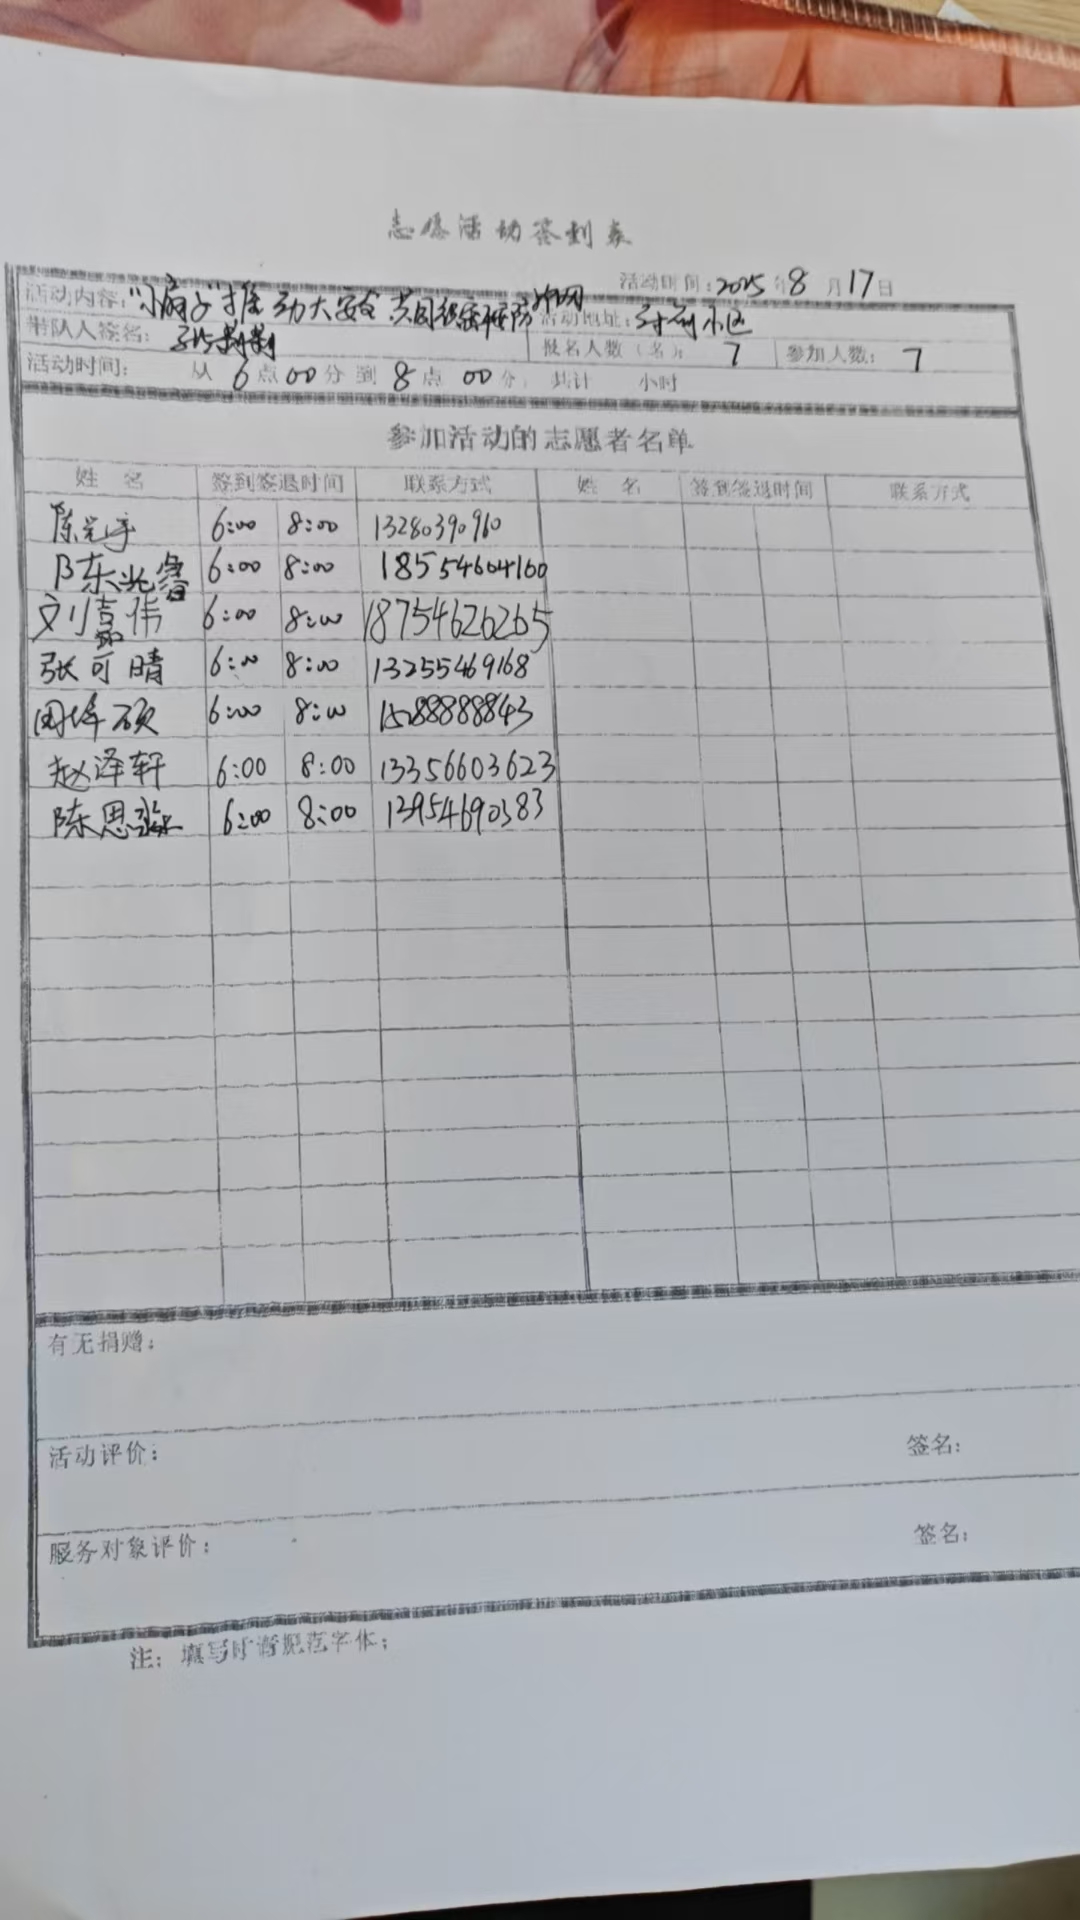 志愿活动签到表
活动时间：2025年8月17日
活动内容："小扇子"推动大安全 共同 防 网 活动地址： 小区
带队人签名： 报名人数（名）：7 参加人数：7
活动时间： 从6点00分到8点00分，共计 小时
参加活动的志愿者名单
姓 名 签到签退时间 联系方式 姓 名 签到签退时间 联系方式
陈 宇 6:00 8:00 13280390960
陈兆睿 6:00 8:00 18554604160
刘嘉伟 6:00 8:00 18754626265
张可晴 6:00 8:00 13255469168
周 硕 6:00 8:00
赵泽轩 6:00 8:00 13356603623
陈思淼 6:00 8:00 13954690383
有无捐赠：
活动评价： 签名：
服务对象评价： 签名：
注：填写时请规范字体；